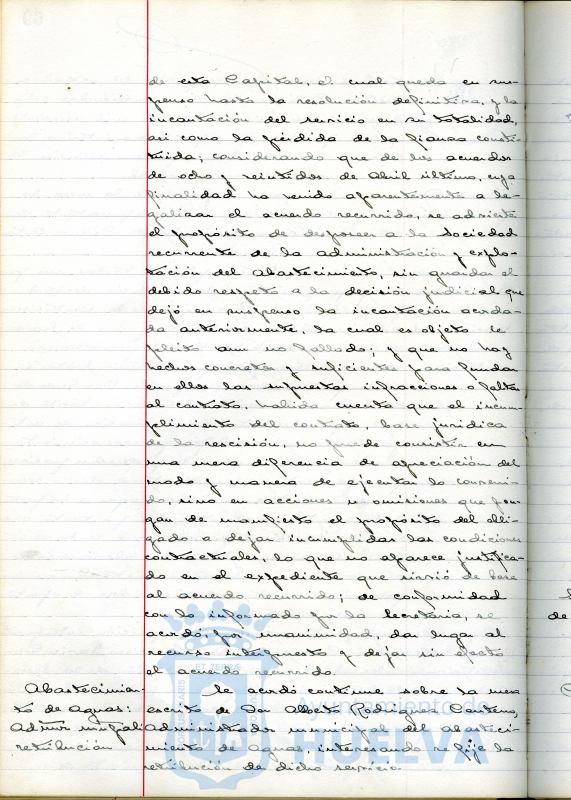 de esta Capital, el cual queda en sus-
penso hasta la resolución definitiva, y la
incautación del servicio en su totalidad,
asi como la pérdida de la fianza consti-
tuida; considerando que de los acuerdos
de ocho y veintidos de Abril último, cuya
finalidad ha venido aparentemente a le-
galizar el acuerdo recurrido, se advierte
el propósito de desposeer a la Sociedad
recurrente de la administración y explo-
tación del Abastecimiento, sin guardar el
debido respeto a la decisión judicial que
dejó en suspenso la incautación acorda-
da anteriormente, la cual es objeto de
pleito aun no fallado; y que no hay
hechos concretos y suficientes para fundar
en ellos las supuestas infracciones o faltas
al contrato, habida cuenta que el incum-
plimiento del contrato, base juridica
de la rescisión, no puede consistir en
una mera diferencia de apreciación del
modo y manera de ejecutar lo conveni-
do, sino en acciones u omisiones que pon-
gan de manifiesto el propósito del obli-
gado a dejar incumplidas las condiciones
contractuales, lo que no aparece justifica-
do en el expediente que sirvió de base
al acuerdo recurrido; de conformidad
con lo informado por la Secretaria, se
acordó, por unanimidad, dar lugar al
recurso interpuesto y dejar sin efecto
el acuerdo recurrido.
Abastecimien-
to de Aguas:
Admor munpal
retribución
Se acordó continue sobre la mesa
escrito de Don Alberto Rodriguez
Administrador municipal del abasteci-
miento de Aguas, interesando se fije la
retribución de dicho servicio.
de
Ayuntamiento de
HUELVA